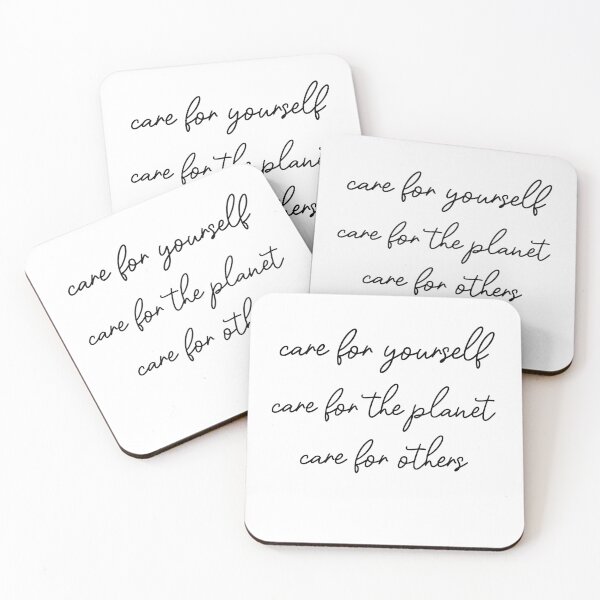 care for yourself
care for the
care for yourself
care for the planet
care for others
care for yourself
care for the planet
care for
care for yourself
care for the planet
care for others